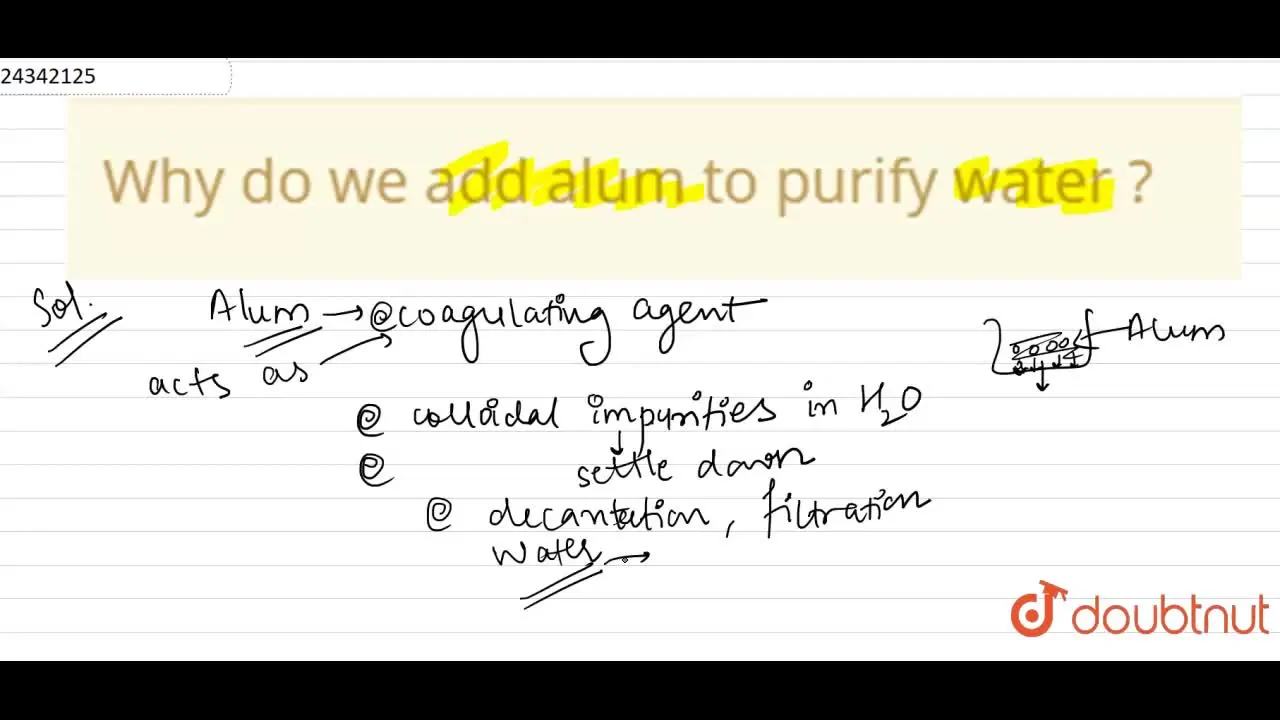 24342125
Why do we add alum to purify water ?
Sol.
Alum → @coagulating agent
Alum
acts as
@ colloidal impurities in H2O
@ settle down
@ decantation, filtration
Water →
doubtnut